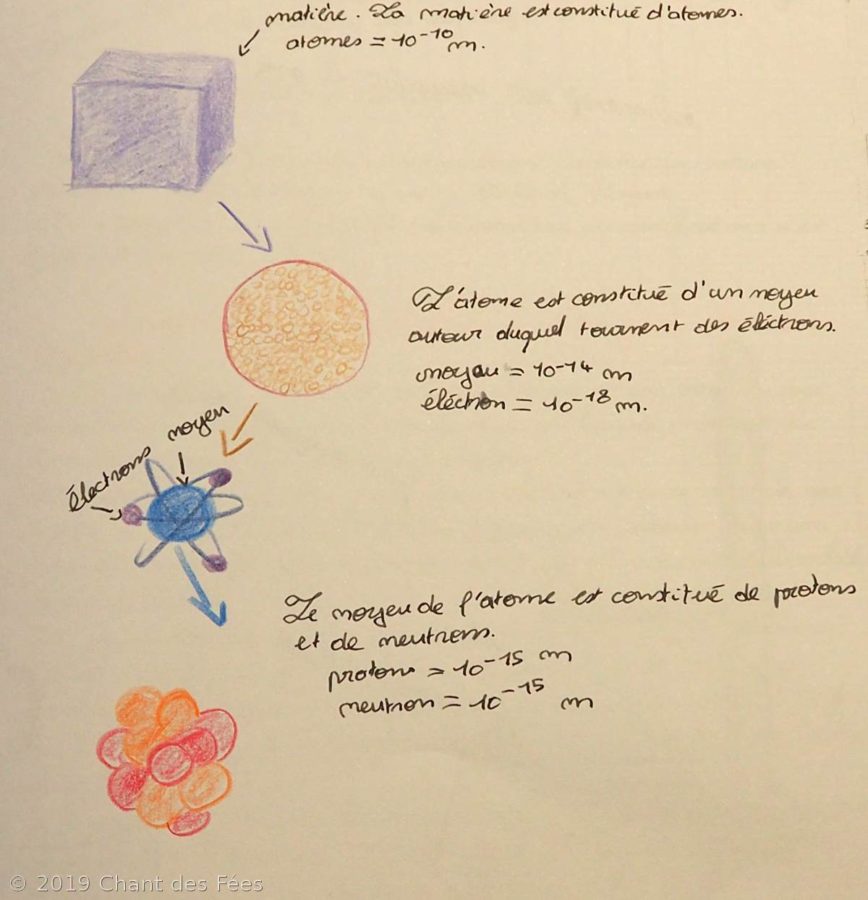 matière. La matière est constitué d'atomes.
atomes = 10⁻¹⁰ m.
L'atome est constitué d'un noyau
autour duquel tournent des éléctrons.
noyau = 10⁻¹⁴ m
éléctron = 10⁻¹⁸ m.
électrons
noyau
Le noyau de l'atome est constitué de protons
et de neutrons.
protons = 10⁻¹⁵ m
neutron = 10⁻¹⁵ m
© 2019 Chant des Fées